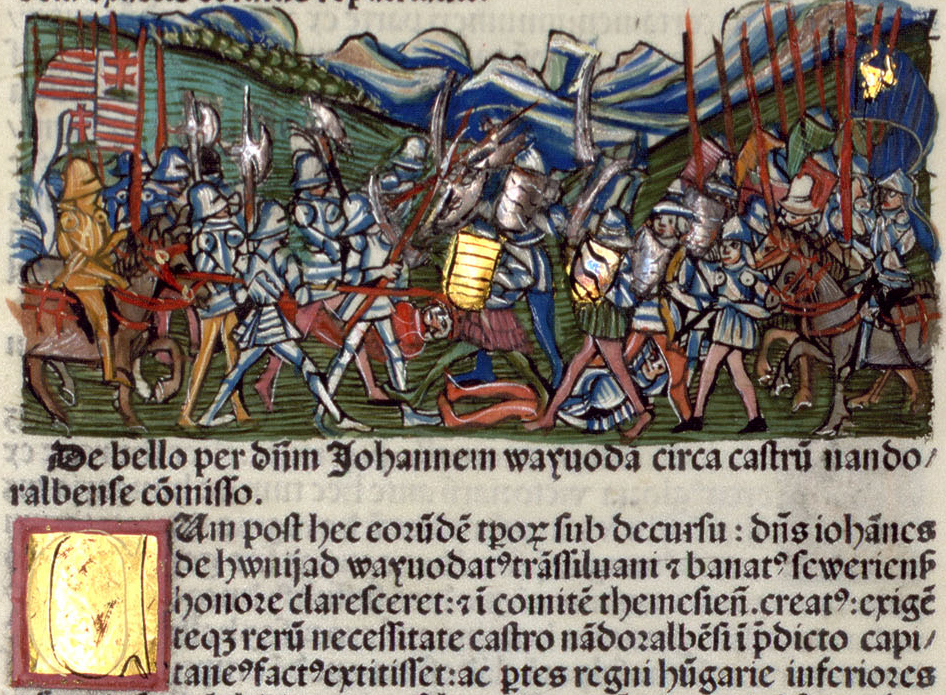 De bello per dñm Johannem wayuodā circa castrū nando/
ralbense cōmisso.
Um post hec eorūdē tꝑoꝝ sub decursu : dñs iohānes
de hwnijad wayuodatꝰ trāssiluani ⁊ banatꝰ sewerienß
honore claresceret:⁊ ī comitē themesieñ.creatꝰ:exigē
teqꝫ rerū necessitate castro nādoralbēsi ī p̄dicto capi/
taneꝰ factꝰ extitisset:ac ꝑtes regni hūgarie inferiores